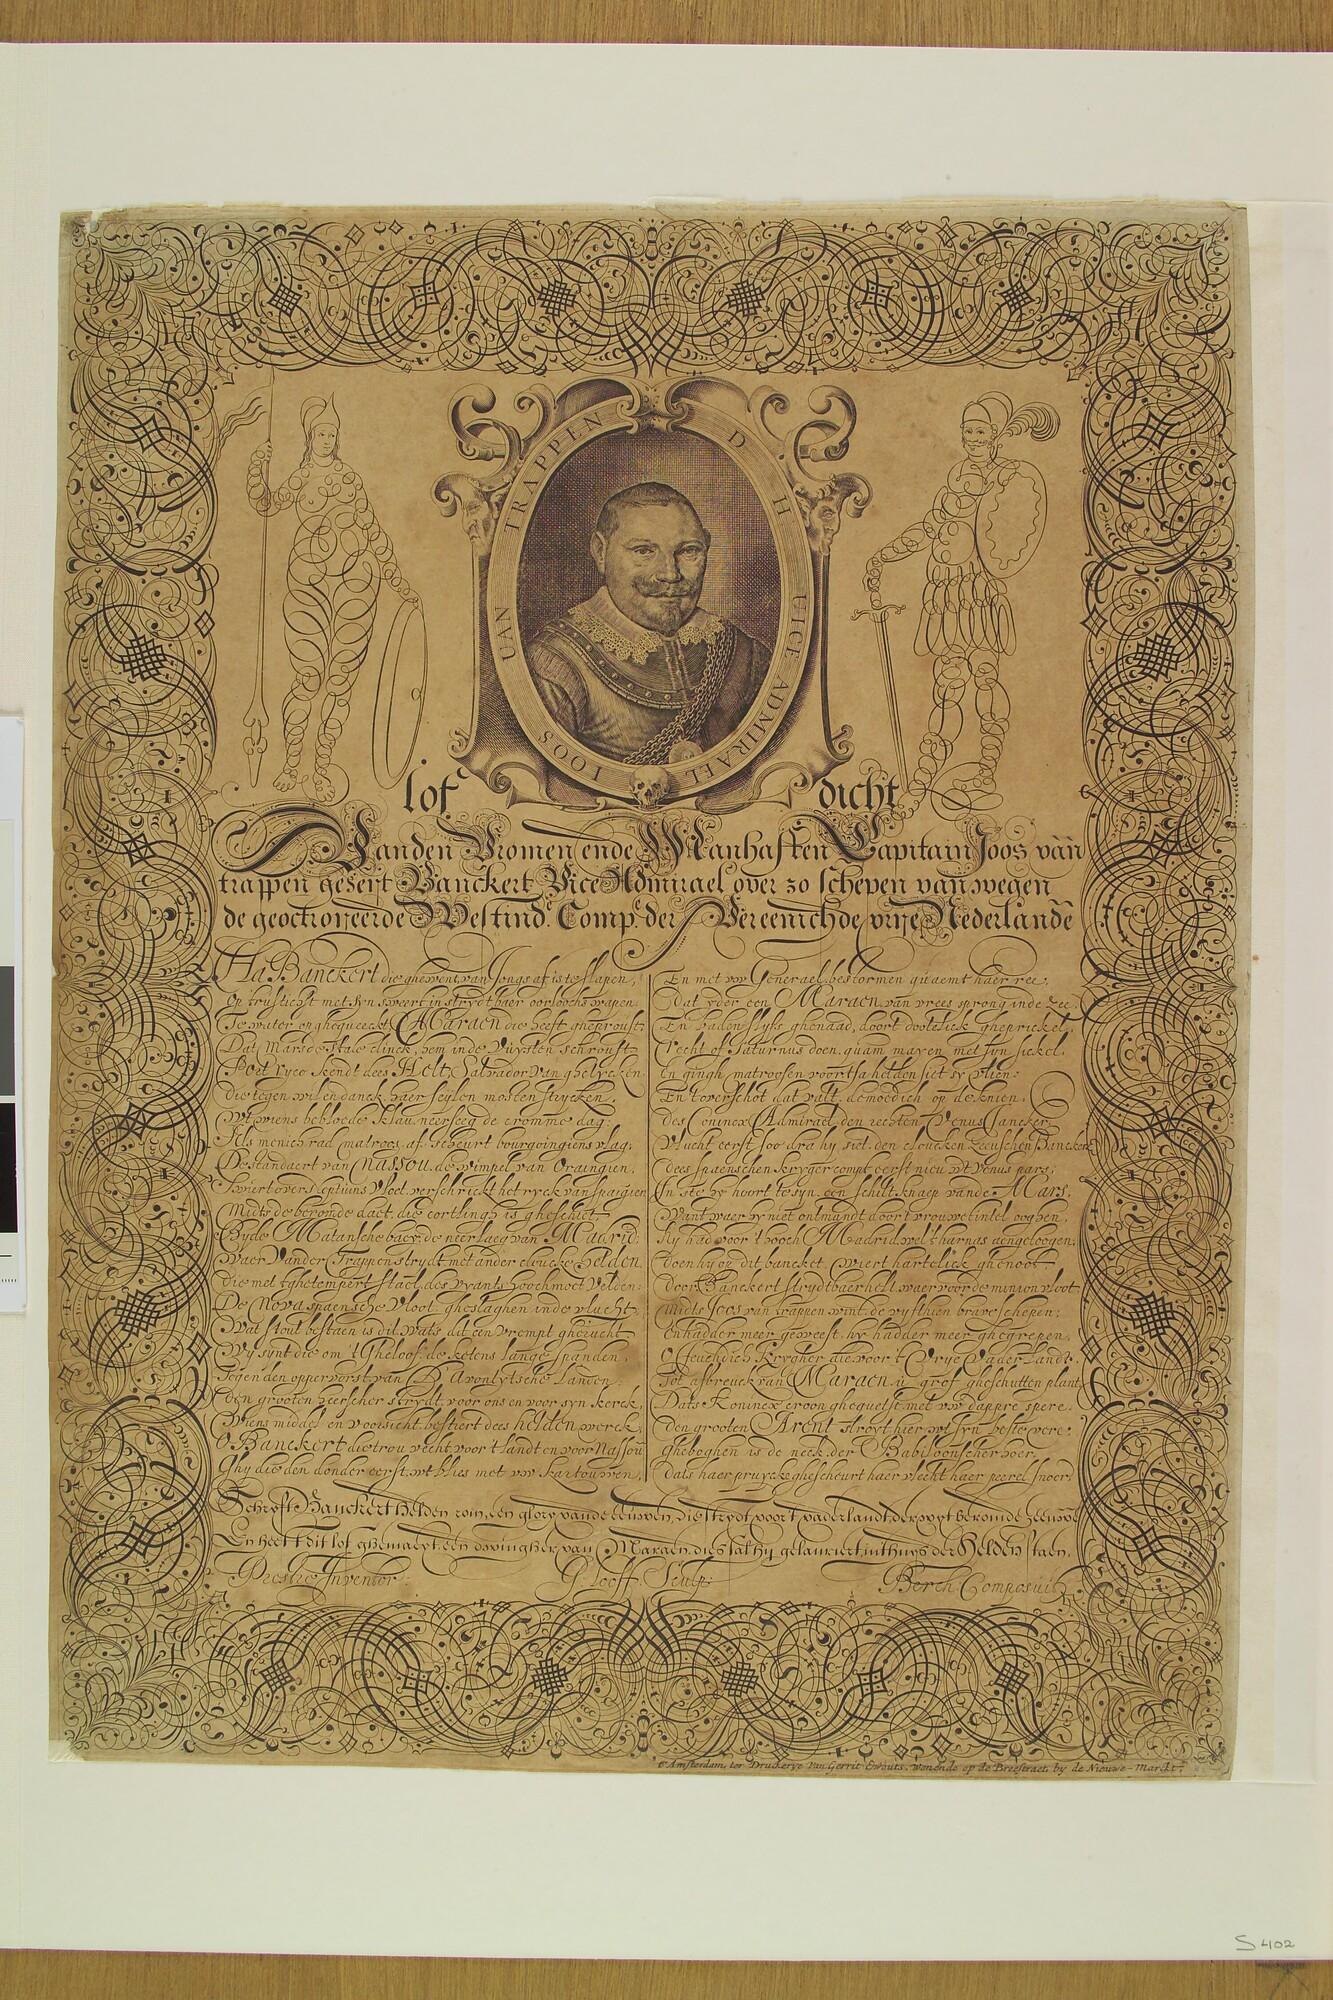 IOOS UAN TRAPPEN D H UICE ADMIRAEL
lof dicht
Vanden Vromen ende Manhaften Capitain Joos van
trappen geseijt Banckert Vice Admirael over 30 schepen van wegen
de geoctroyeerde Westind. Comp. der Vereenichde vrije Nederlande
Banckert die ghewent van Jongs af is te slapen,
Op met syn sweert in strydtbaer oorlochs wapen.
Te water op ghequeeckt Maraen die heeft gheproust,
Dat Mars de clinck, hem inde Vuysten schroust
kendt dees Helt, Salvador van ghelycken
die tegen wil en danck haer seylen mosten strycken,
Wt wiens bebloede klau neerseeg de cromme dag:
Als menich rad matroos af scheurt bourgoingiens vlag,
De standaert van Nassou, de wimpel van Oraingien,
Swiert over Neptuins Vloet, verschrickt het ryck van Spaigien
Midts de beromde daet, die cortlingh is gheschiet,
Byde Matansche baey, de neerlaeg van Madrid:
Waer Vander Trappen strydt met ander cloucke Helden
die met ghetempert stael, des vyants hoochmoet velden:
De Nova spaensche Vloot gheslaghen inde vlucht
Wat stout bestaen is dit, wat's dit een vrempt gherucht
Wy synt die om 't Gheloof de ketens lange spanden,
Tegen den oppervorst van Avontytsche Landen:
den grooten heerscher strydt voor ons en voor syn kerck,
Wiens middel en voorsicht bestiert dees helden werck,
O Banckert die trou vecht voor 't landt en voor Nassou
Ghy die den donder eerst wt blies met vw kartouwen,
En met vw Generael bestormen quaemt haer ree,
Dat yder een Maraen van vrees sprong inde zee,
En baden slyfs ghenaed, doort dootelick gheprickel,
recht of Saturnus doen quam mayen met syn sickel,
En gingh matroosen
En t'overschot dat valt demoedich op de knien,
des Conincx Admirael, den rechten Venus Jancker,
Vlucht eerst soo dra hy siet den cloucken Zeeuschen Banckert
dees spaenschen kryger compt eerst nieu wt Venus pars,
En hy hoort te syn een schilt knaep vande Mars,
Want waer hy niet ontmandt door t vrouwelintel ooghen,
Hy had voor t hooch Madrid wel t harnas aengetoogen,
doen hy op dit bancket wiert hartelick ghenoot
door Banckert strydtbaer heldt waer voor de minion vloot
midts Joos van trappen wint de vyfthien brave schepen:
En hadder meer geweest hy hadder meer ghegrepen,
O Jeuchdich Krygher die voor 't Vrye Vaderlandt
Tot afbreuck van Maraen u grof gheschutten plant
Dats Konincx croon ghequetst met vw dappre spere
den grooten Arent stroyt hier wt syn beste vere:
Ghebeghen is de neck der Babiloonscher hoer
dats haer pruycke ghescheurt haer vlecht haer peerel snoer
Schryft Banckert Helden roin, een glory vande eeuwen, die strydt voort vaderlandt der wyt beromde Zeeuwe
En heeft dit lof ghemaeckt een dwingher van Maraen, dies sal hy gelauriert int huys der Helden staen.
Prestre Inventor. G. Looff Sculp. Berch Composuit
t'Amsterdam, ter Druckerye van Gerrit Ewouts, wonende op de Breestraet, by de Nieuwe-Marckt.
S 402